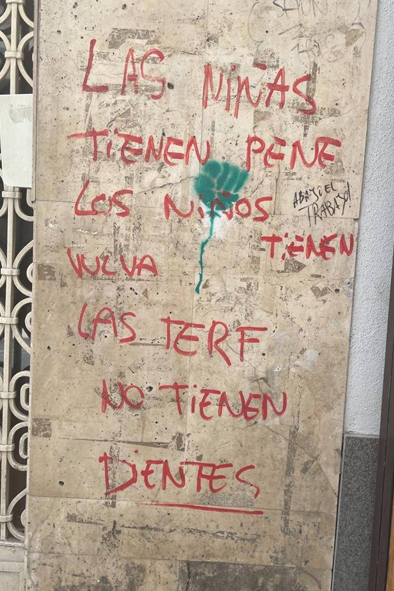 LAS NIÑAS
TIENEN PENE
LOS NIÑOS
TIENEN
VULVA
LAS TERF
NO TIENEN
DIENTES
ABAJO EL
TRABAJO!